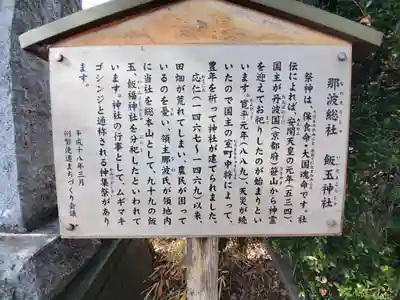 那波総社 飯玉神社
祭神は、保食命・大国魂命です。社
伝によれば、安閑天皇の元年(五三四)、
国主が丹波国(京都府)笹山から神霊
を迎えてお祀りしたのが始まりとい
います。寛平元年(八八九)天災が続
いたので国主の室町中将によって、
豊年を祈って神社が建てられました。
応仁(一四六七~一四六九)以来、
田畑が荒れてしまい、農民が困って
いるのを憂い、領主那波氏が領地内
に当社を総本山として、九十九の飯
玉、飯福神社を分祀したといわれて
います。神社の行事として、ムギマキ
ゴシンジと通称される神集祭があり
ます。
平成十八年三月
例幣使道まちづくり会議